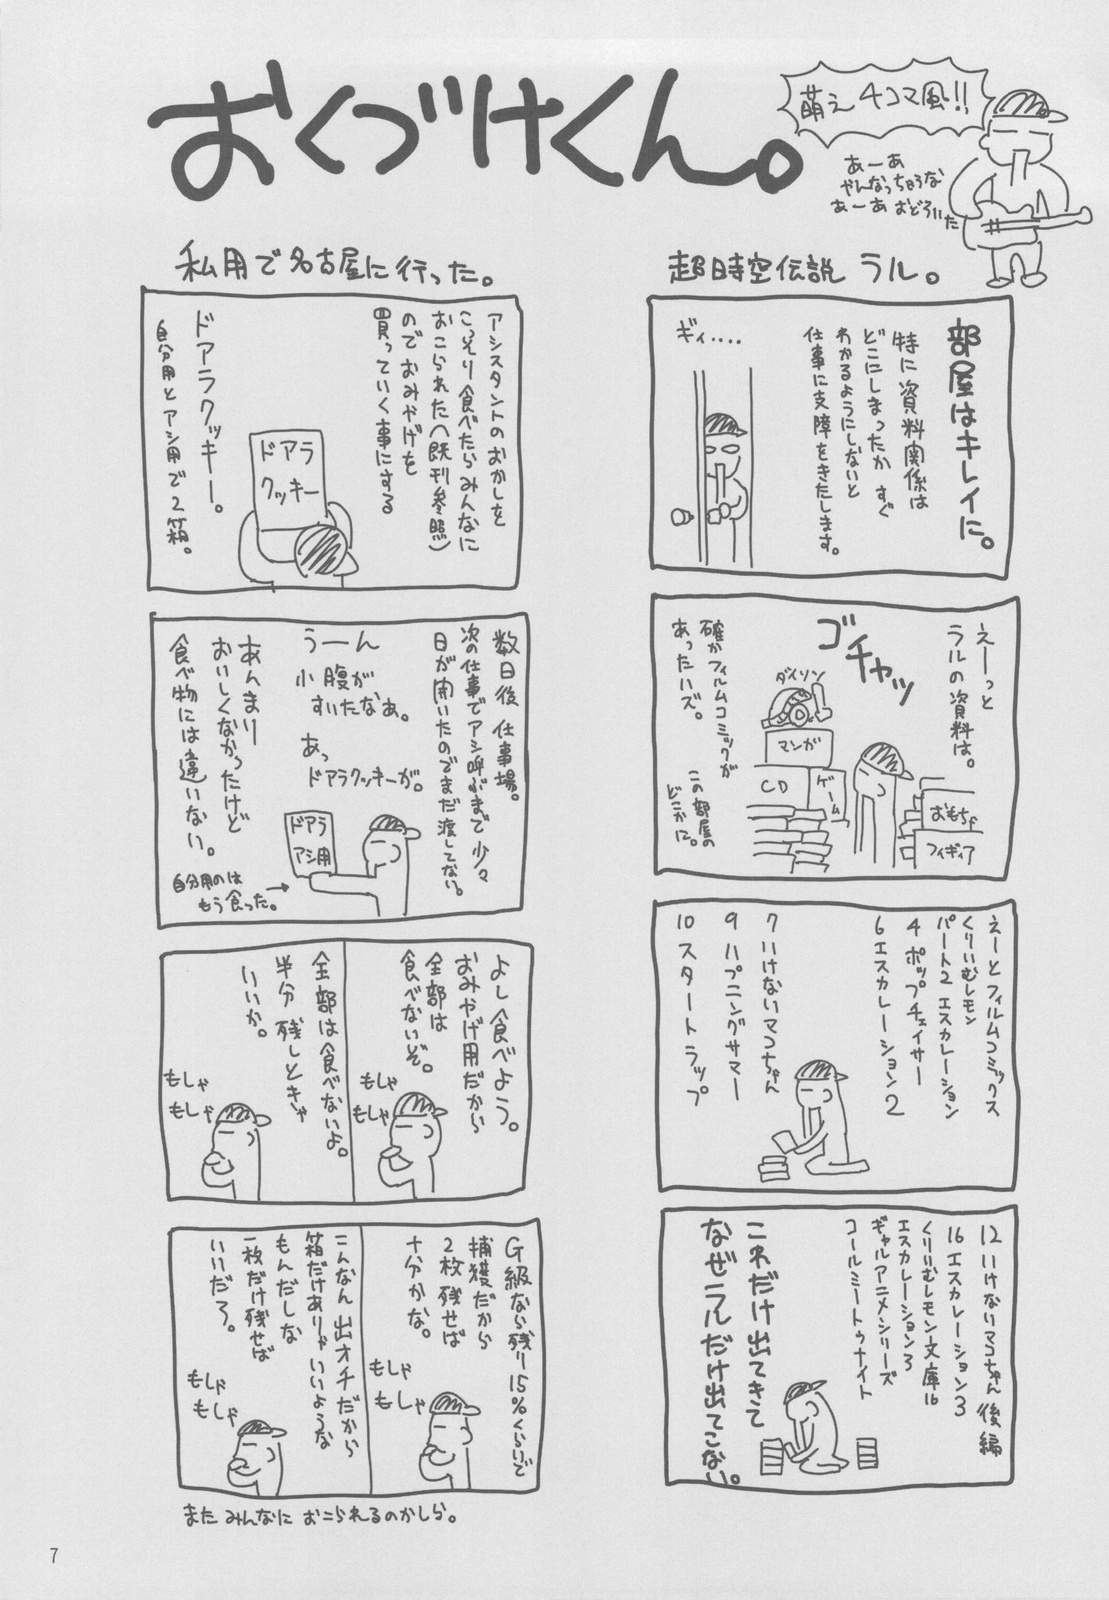 おくづけくん。
萌え4コマ風!!
あーあ
やんなっちゃうな
あーあ おどろいた
超時空伝説 ラル。
部屋はキレイに。
特に資料関係は
どこにしまったか すぐ
わかるようにしないと
仕事に支障をきたします。
ギィ‥‥
えーっと
ラルの資料は。
ゴチャッ
ダイソン
マンガ
CD
ゲーム
おもちゃ
フィギィア
確かフィルムコミックが
あったハズ。
この部屋の
どこかに。
えーとフィルムコミックス
くりいむレモン
パート2 エスカレーション
4 ポップチェイサー
6 エスカレーション2
7 いけないマコちゃん
9 ハプニングサマー
10 スタートラップ
12 いけないマコちゃん 後編
16 エスカレーション3
くりいむレモン文庫16
エスカレーション3
ギャルアニメシリーズ
コールミートゥナイト
これだけ出てきて
なぜラルだけ出てこない。
私用で名古屋に行った。
アシスタントのおかしを
こっそり食べたらみんなに
おこられた(既刊参照)
ので おみやげを
買っていく事にする
ドアラ
クッキー
ドアラクッキー。
自分用とアシ用で2箱。
数日後 仕事場。
次の仕事でアシ呼ぶまで少々
日が開いたのでまだ渡してない。
うーん
小腹が
すいたなあ。
あっ
ドアラクッキーが。
ドアラ
アシ用
あんまり
おいしくなかったけど
食べ物には違いない。
自分用のは
もう食った。
よし食べよう。
おみやげ用だから
全部は
食べないぞ。
もしゃ
もしゃ
全部は食べないよ。
半分 残しときゃ
いいか。
もしゃ
もしゃ
G級なら残り15%くらいで
捕獲だから
2枚 残せば
十分かな。
もしゃ
もしゃ
こんなん 出オチだから
箱だけありゃいいような
もんだしな
一枚だけ残せば
いいだろ。
もしゃ
もしゃ
また みんなに おこられるのかしら。
7